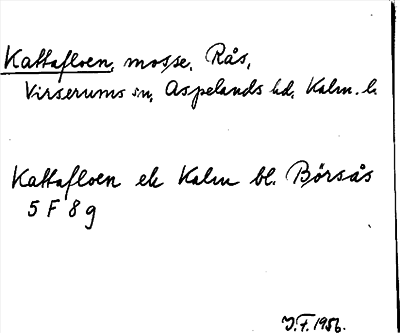 Kattafloen, mosse, Rås,
Virserums sn, Aspelands hd, Kalm. l.
Kattafloen ek Kalm bl. Börsås
5 F 8 g
J.F. 1956.